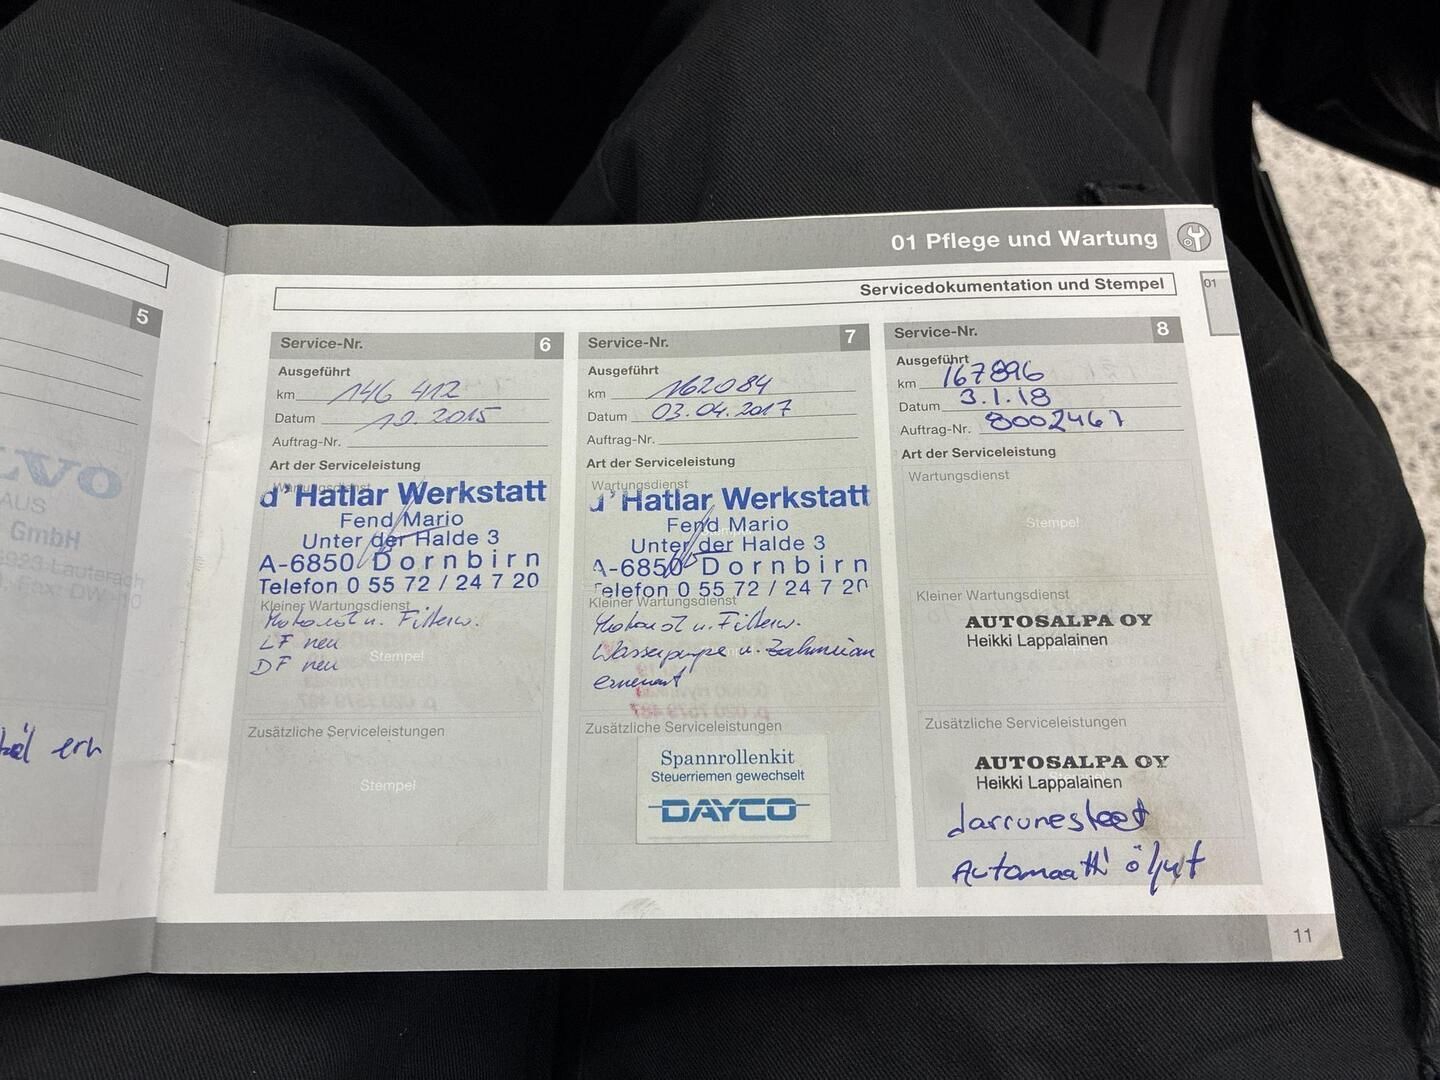 5
LVO
AUS
GmbH
6923 Lauterach
ern
01 Pflege und Wartung
Servicedokumentation und Stempel
01
Service-Nr. 6
Ausgeführt
km 146 412
Datum 10.2015
Auftrag-Nr.
Art der Serviceleistung
Wartungsdienst
d'Hatlar Werkstatt
Fend Mario
Unter der Halde 3
A-6850 Dornbirn
Telefon 0 55 72 / 24 7 20
Kleiner Wartungsdienst
Motoröl u. Filterw.
LF neu
DF neu
Stempel
Zusätzliche Serviceleistungen
Stempel
Service-Nr. 7
Ausgeführt
km 162084
Datum 03.04.2017
Auftrag-Nr.
Art der Serviceleistung
Wartungsdienst
d'Hatlar Werkstatt
Fend Mario
Unter der Halde 3
A-6850 Dornbirn
Telefon 0 55 72 / 24 7 20
Kleiner Wartungsdienst
Motoröl u. Filterw.
Wasserpumpe u. Zahnriemen
erneuert
Zusätzliche Serviceleistungen
Spannrollenkit
Steuerriemen gewechselt
DAYCO
Service-Nr. 8
Ausgeführt
km 167896
Datum 3.1.18
Auftrag-Nr. 8002467
Art der Serviceleistung
Wartungsdienst
Stempel
Kleiner Wartungsdienst
AUTOSALPA OY
Heikki Lappalainen
Stempel
Zusätzliche Serviceleistungen
AUTOSALPA OY
Heikki Lappalainen
Stempel
Jarrunesteet
Automaatti öljyt
11